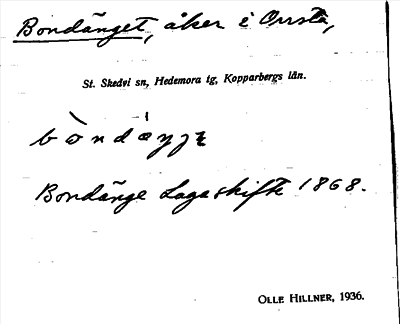 Bondänget, åker i Orrsta,
St. Skedvi sn, Hedemora tg, Kopparbergs län.
Bondänge Lagaskifte 1868.
OLLE HILLNER, 1936.